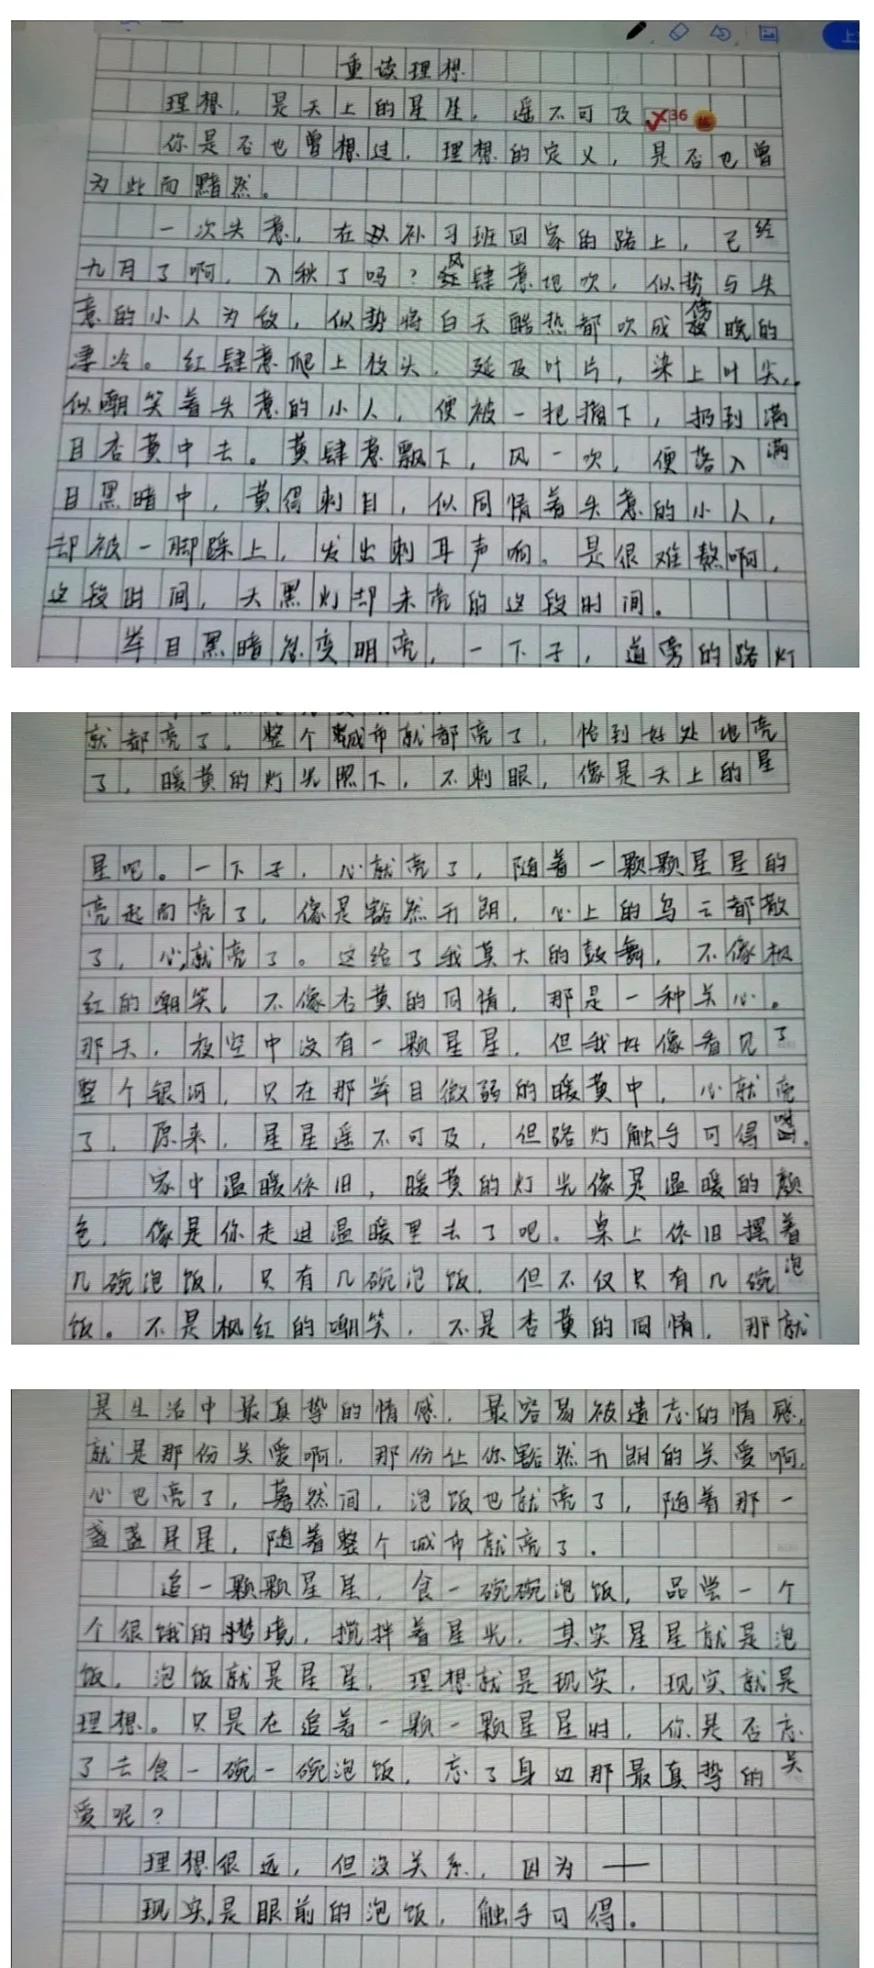 重读理想
理想，是天上的星星，遥不可及 36
你是否也曾想过，理想的定义，是否也曾
为此而黯然。
一次失意，在从补习班回家的路上，已经
九月了啊，入秋了吗？风肆意地吹，似势与失
意的小人为敌，似势将白天酷热都吹成傍晚的
凄冷。红肆意爬上枝头，延及叶片，染上叶尖，
似嘲笑着失意的小人，便被一把摘下，扔到满
目杏黄中去。黄肆意飘下，风一吹，便落入满
目黑暗中，黄得刺目，似同情着失意的小人，
却被一脚踩上，发出刺耳声响。是很难熬啊，
这段时间，天黑灯却未亮的这段时间。
举目黑暗忽变明亮，一下子，道旁的路灯
就都亮了，整个城市就都亮了，恰到好处地亮
了，暖黄的灯光照下，不刺眼，像是天上的星
星吧。一下子，心就亮了，随着一颗颗星星的
亮起而亮了，像是豁然开朗，心上的乌云都散
了，心就亮了。这给了我莫大的鼓舞，不像枫
红的嘲笑，不像杏黄的同情，那是一种关心。
那天，夜空中没有一颗星星，但我好像看见了
整个银河，只在那举目微弱的暖黄中，心就亮
了，原来，星星遥不可及，但路灯触手可得
家中温暖依旧，暖黄的灯光像是温暖的颜
色，像是你走进温暖里去了吧。桌上依旧摆着
几碗泡饭，只有几碗泡饭，但不仅只有几碗泡
饭。不是枫红的嘲笑，不是杏黄的同情，那就
是生活中最真挚的情感，最容易被遗忘的情感，
就是那份关爱啊，那份让你豁然开朗的关爱啊，
心也亮了，蓦然间，泡饭也就亮了，随着那一
盏盏星星，随着整个城市就亮了。
追一颗颗星星，食一碗碗泡饭，品尝一个
个很饿的梦境，搅拌着星光，其实星星就是泡
饭，泡饭就是星星，理想就是现实，现实就是
理想。只是在追着一颗一颗星星时，你是否忘
了去食一碗一碗泡饭，忘了身边那最真挚的关
爱呢？
理想很远，但没关系，因为——
现实是眼前的泡饭，触手可得。